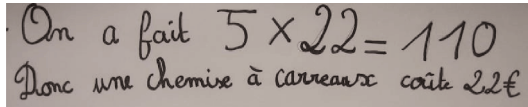 On a fait 5 × 22 = 110
Donc une chemise à carreaux coûte 22€